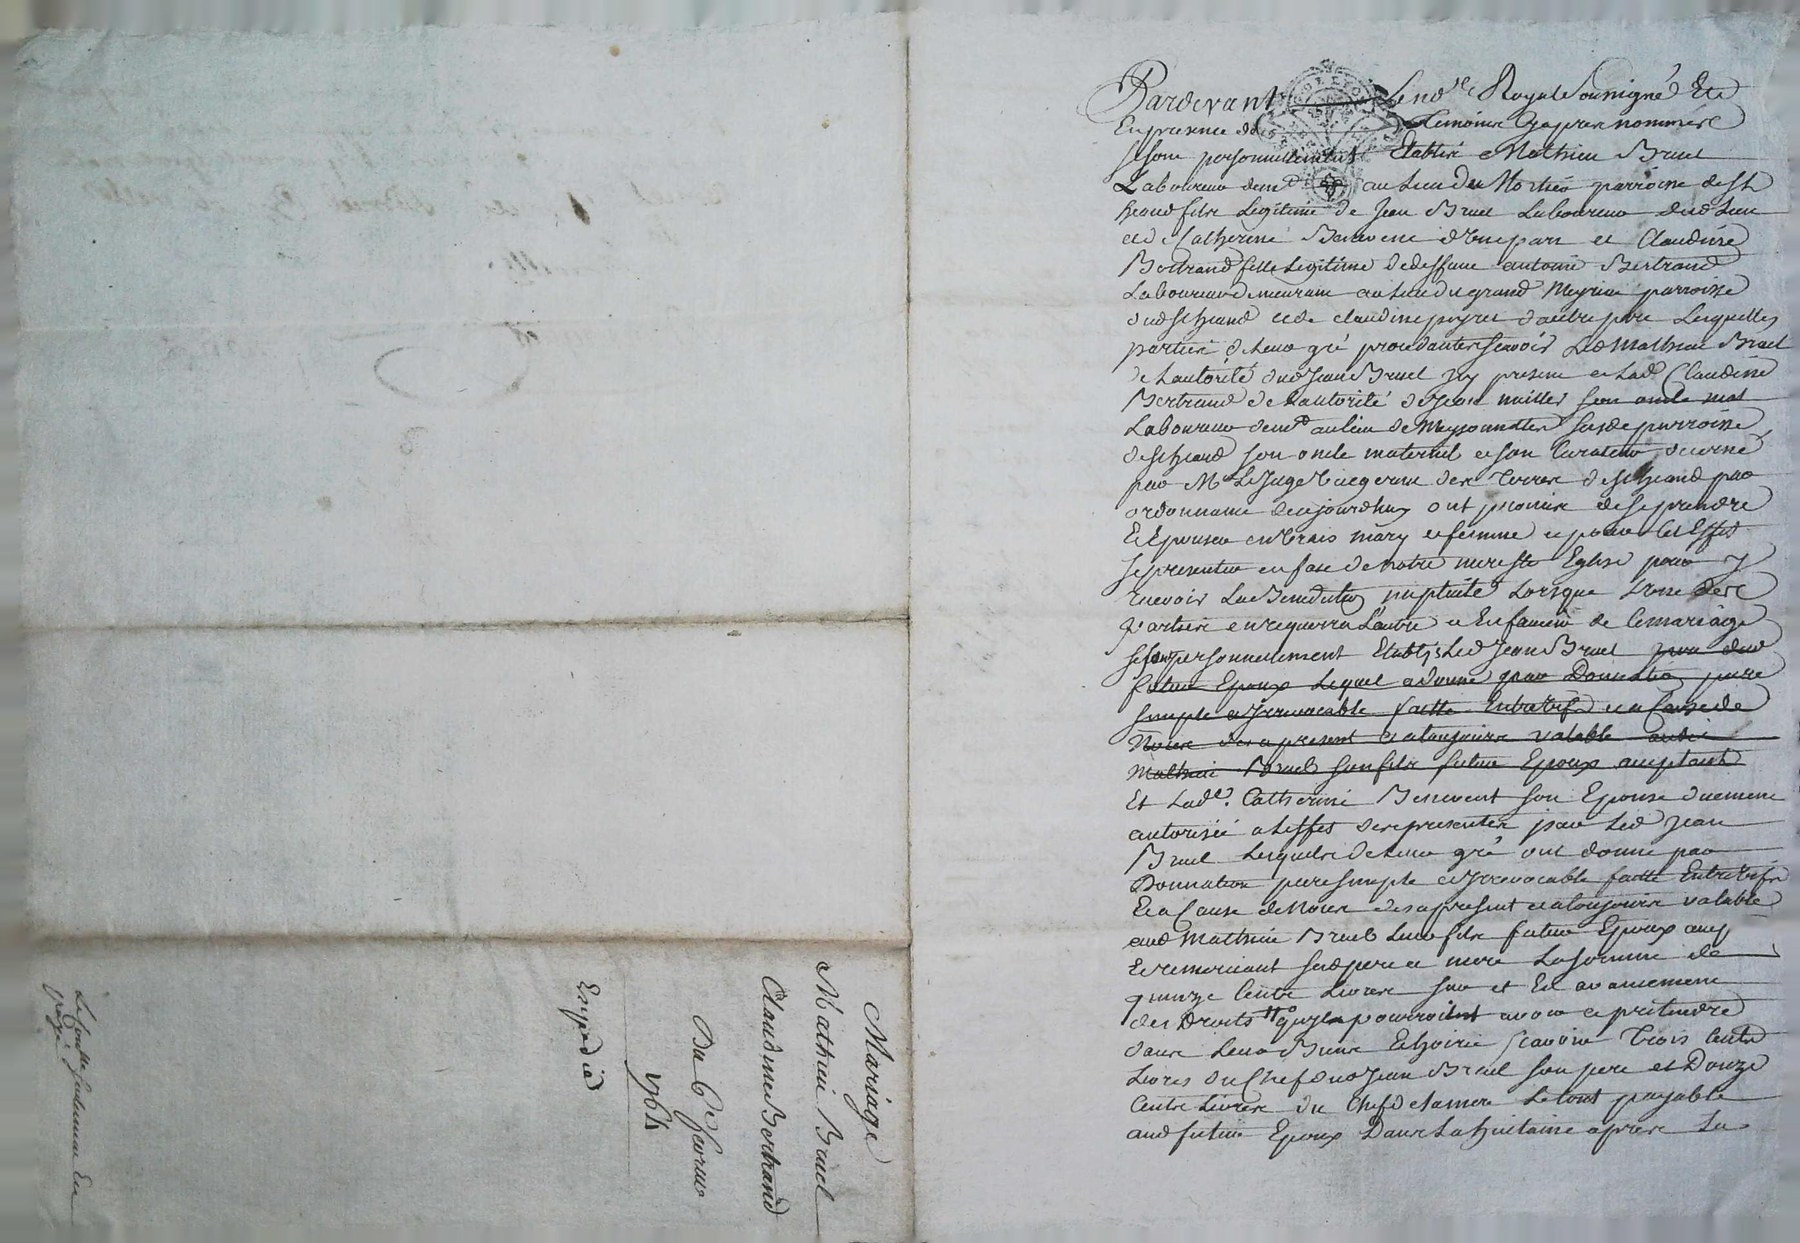 Mariage
Mathieu Bruel
Claudine Bertrand
Du 6e fevrier
1764
Expedié
Pardevant Le no.re Royal Soussigné Et
En presence des temoins Cy apres nommés
se sont personnellement Etablis Mathieu Bruel
Laboureur dem.t au Lieu du parroisse de St
heand fils Legitime de Jean Bruel Laboureur dud Lieu
et de Catherine Benevent d'Une part et Claudine
Bertrand fille Legitime de deffunt antoine Bertrand
Laboureur demeurant au Lieu du grand parroisse
dud St heand et de claudine peyret d'autre part Lesquelles
parties de Leur gré procedantes scavoir Led Mathieu Bruel
de Lautorité dud Jean Bruel Icy present et Lad Claudine
Bertrand de Lautorité de Jean son oncle mat
Laboureur dem.t au lieu de parroisse
de St heand son oncle maternel et son Curateur decerné
par Mr Le Juge des Terres de St heand par
ordonnance de cejourdhuy ont promis de se prendre
Et Epouser en Vrais mary et femme et pour Cet Effet
se presenter en face de notre mere ste Eglise pour y
recevoir La Benediction nuptiale Lorsque L'une des
Parties en requerra L'autre et En faveur de Ce mariage
se sont personnellement Etablis Led Jean Bruel
futur Epoux Lequel a donné par Donnation pure
simple et Irrevocable faitte Entrevifs et a Cause de
Noces des a present et a toujours valable audit
Mathieu Bruel son fils futur Epoux acceptant
Et Lad.e Catherine Benevent son Epouse duement
autorisée a Leffet des presentes par Led Jean
Bruel Lesquels de Leur gré ont donné par
Donnation pure simple et Irrevocable faitte Entrevifs
Et a Cause de Noces des a present et a toujours valable
aud Mathieu Bruel Leur fils futur Epoux
Et remerciant sesd pere et mere La somme de
quinze Cents Livres sur et En avancement
des Droits qu'il pourroit avoir et pretendre
dans Leurs Biens Et hoirie scavoir Trois Cents
Livres du Chef dud Jean Bruel son pere et Douze
Cents Livres du Chef de sa mere Le tout payable
aud futur Epoux Dans La huitaine apres La